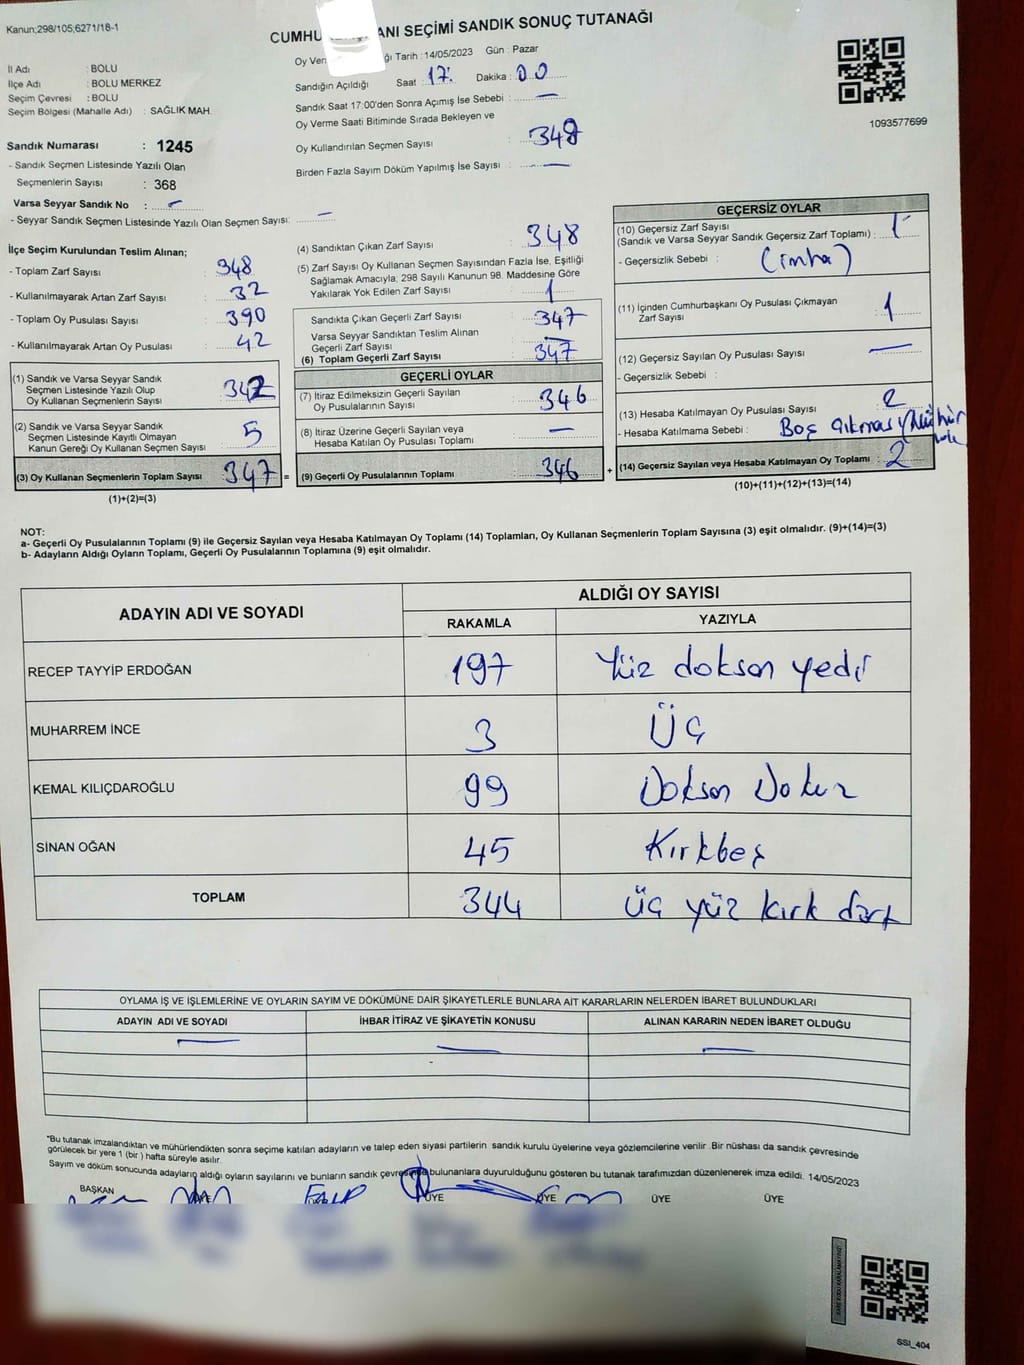 Kanun;298/105;6271/18-1
CUMHU ANI SEÇİMİ SANDIK SONUÇ TUTANAĞI
İl Adı : BOLU
İlçe Adı : BOLU MERKEZ
Seçim Çevresi : BOLU
Seçim Bölgesi (Mahalle Adı) : SAĞLIK MAH.
Sandık Numarası : 1245
- Sandık Seçmen Listesinde Yazılı Olan
Seçmenlerin Sayısı : 368
Varsa Seyyar Sandık No : —
- Seyyar Sandık Seçmen Listesinde Yazılı Olan Seçmen Sayısı: —
Oy Ver ğı Tarih : 14/05/2023 Gün : Pazar
Sandığın Açıldığı Saat : 17. Dakika : 00
Sandık Saat 17:00'den Sonra Açımış İse Sebebi : —
Oy Verme Saati Bitiminde Sırada Bekleyen ve
Oy Kullandırılan Seçmen Sayısı : 348
Birden Fazla Sayım Döküm Yapılmış İse Sayısı : —
1093577699
İlçe Seçim Kurulundan Teslim Alınan;
- Toplam Zarf Sayısı : 348
- Kullanılmayarak Artan Zarf Sayısı : 32
- Toplam Oy Pusulası Sayısı : 390
- Kullanılmayarak Artan Oy Pusulası : 42
(1) Sandık ve Varsa Seyyar Sandık
Seçmen Listesinde Yazılı Olup
Oy Kullanan Seçmenlerin Sayısı : 342
(2) Sandık ve Varsa Seyyar Sandık
Seçmen Listesinde Kayıtlı Olmayan
Kanun Gereği Oy Kullanan Seçmen Sayısı : 5
(3) Oy Kullanan Seçmenlerin Toplam Sayısı : 347 =
(1)+(2)=(3)
(4) Sandıktan Çıkan Zarf Sayısı : 348
(5) Zarf Sayısı Oy Kullanan Seçmen Sayısından Fazla İse, Eşitliği
Sağlamak Amacıyla; 298 Sayılı Kanunun 98. Maddesine Göre
Yakılarak Yok Edilen Zarf Sayısı : 1
Sandıkta Çıkan Geçerli Zarf Sayısı : 347
Varsa Seyyar Sandıktan Teslim Alınan
Geçerli Zarf Sayısı : —
(6) Toplam Geçerli Zarf Sayısı : 347
GEÇERLİ OYLAR
(7) İtiraz Edilmeksizin Geçerli Sayılan
Oy Pusulalarının Sayısı : 346
(8) İtiraz Üzerine Geçerli Sayılan veya
Hesaba Katılan Oy Pusulası Toplamı : —
(9) Geçerli Oy Pusulalarının Toplamı : 346 +
GEÇERSİZ OYLAR
(10) Geçersiz Zarf Sayısı
(Sandık ve Varsa Seyyar Sandık Geçersiz Zarf Toplamı) : 1
- Geçersizlik Sebebi : (imha)
(11) İçinden Cumhurbaşkanı Oy Pusulası Çıkmayan
Zarf Sayısı : 1
(12) Geçersiz Sayılan Oy Pusulası Sayısı : —
- Geçersizlik Sebebi :
(13) Hesaba Katılmayan Oy Pusulası Sayısı : 2
- Hesaba Katılmama Sebebi : Boş çıkması
(14) Geçersiz Sayılan veya Hesaba Katılmayan Oy Toplamı : 2
(10)+(11)+(12)+(13)=(14)
NOT:
a- Geçerli Oy Pusulalarının Toplamı (9) ile Geçersiz Sayılan veya Hesaba Katılmayan Oy Toplamı (14) Toplamları, Oy Kullanan Seçmenlerin Toplam Sayısına (3) eşit olmalıdır. (9)+(14)=(3)
b- Adayların Aldığı Oyların Toplamı, Geçerli Oy Pusulalarının Toplamına (9) eşit olmalıdır.
ADAYIN ADI VE SOYADI ALDIĞI OY SAYISI
RAKAMLA YAZIYLA
RECEP TAYYİP ERDOĞAN 197 Yüz doksan yedi
MUHARREM İNCE 3 Üç
KEMAL KILIÇDAROĞLU 99 Doksan Dokuz
SİNAN OĞAN 45 Kırkbeş
TOPLAM 344 üç yüz kırk dört
OYLAMA İŞ VE İŞLEMLERİNE VE OYLARIN SAYIM VE DÖKÜMÜNE DAİR ŞİKAYETLERLE BUNLARA AİT KARARLARIN NELERDEN İBARET BULUNDUKLARI
ADAYIN ADI VE SOYADI İHBAR İTİRAZ VE ŞİKAYETİN KONUSU ALINAN KARARIN NEDEN İBARET OLDUĞU
— — —
"Bu tutanak imzalandıktan ve mühürlendikten sonra seçime katılan adayların ve talep eden siyasi partilerin sandık kurulu üyelerine veya gözlemcilerine verilir. Bir nüshası da sandık çevresinde
görülecek bir yere 1 (bir) hafta süreyle asılır.
Sayım ve döküm sonucunda adayların aldığı oyların sayılarını ve bunların sandık çevresinde bulunanlara duyurulduğunu gösteren bu tutanak tarafımızdan düzenlenerek imza edildi. 14/05/2023
BAŞKAN ÜYE ÜYE ÜYE ÜYE ÜYE
SSI_404